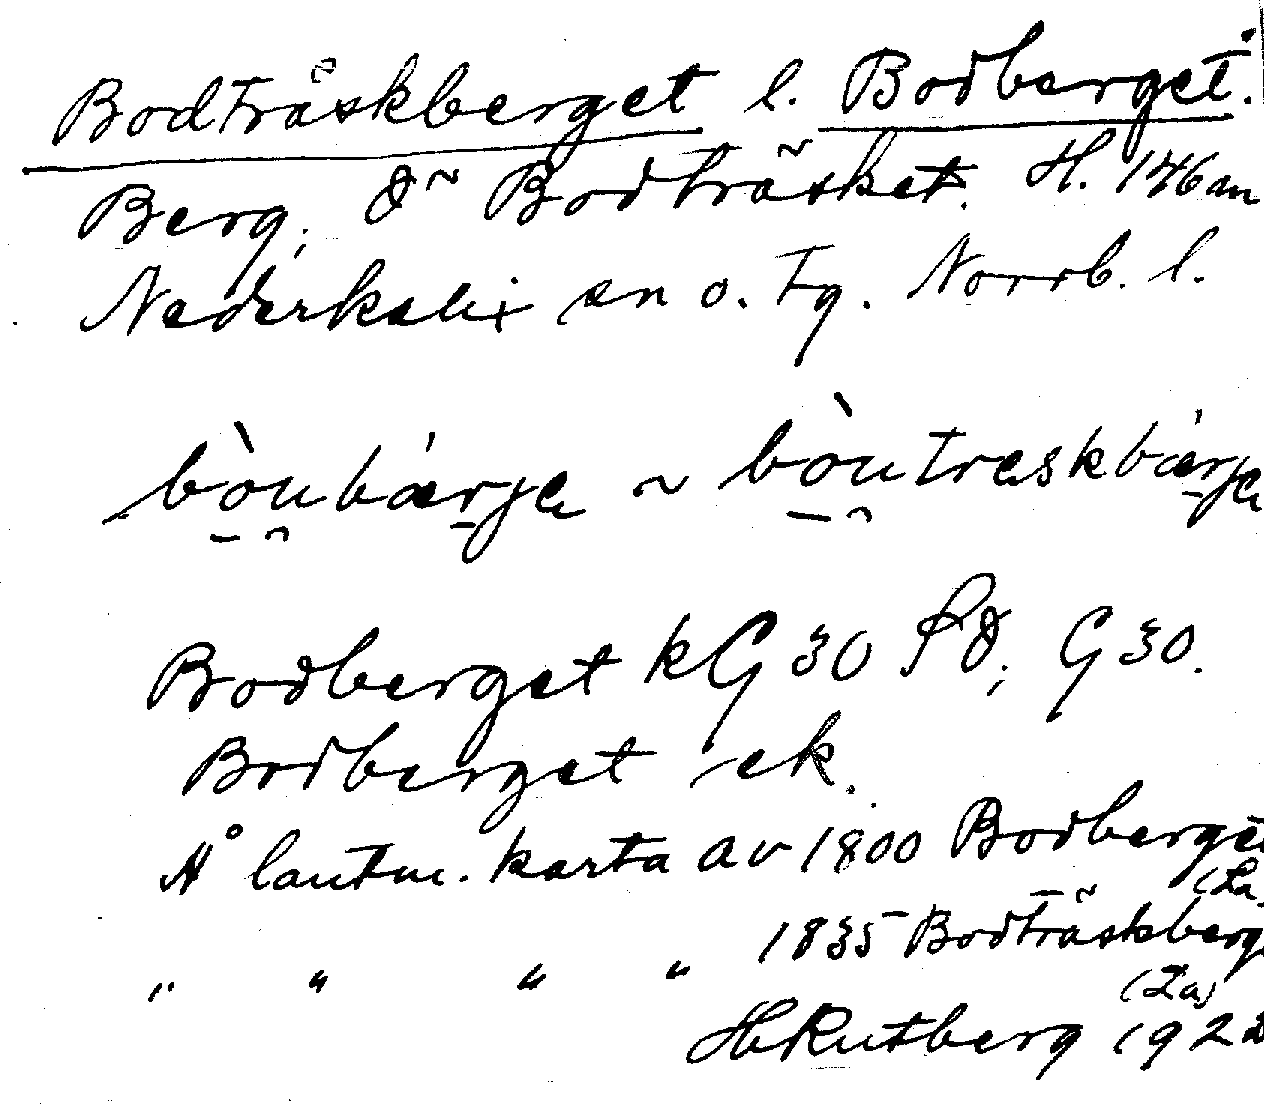 Bodträskberget l. Bodberget.
Berg, ö Bodträsket. H. 146 m
Nederkalix sn o. tg. Norrb. l.
bòubærje ~ bòutræskbærje
Bodberget kG 30 Sö, G 30.
Bodberget ek.
Å lantm. karta av 1800 Bodberget
(La)
" " " " 1835 Bodträskberg
(La)
HRutberg 1922